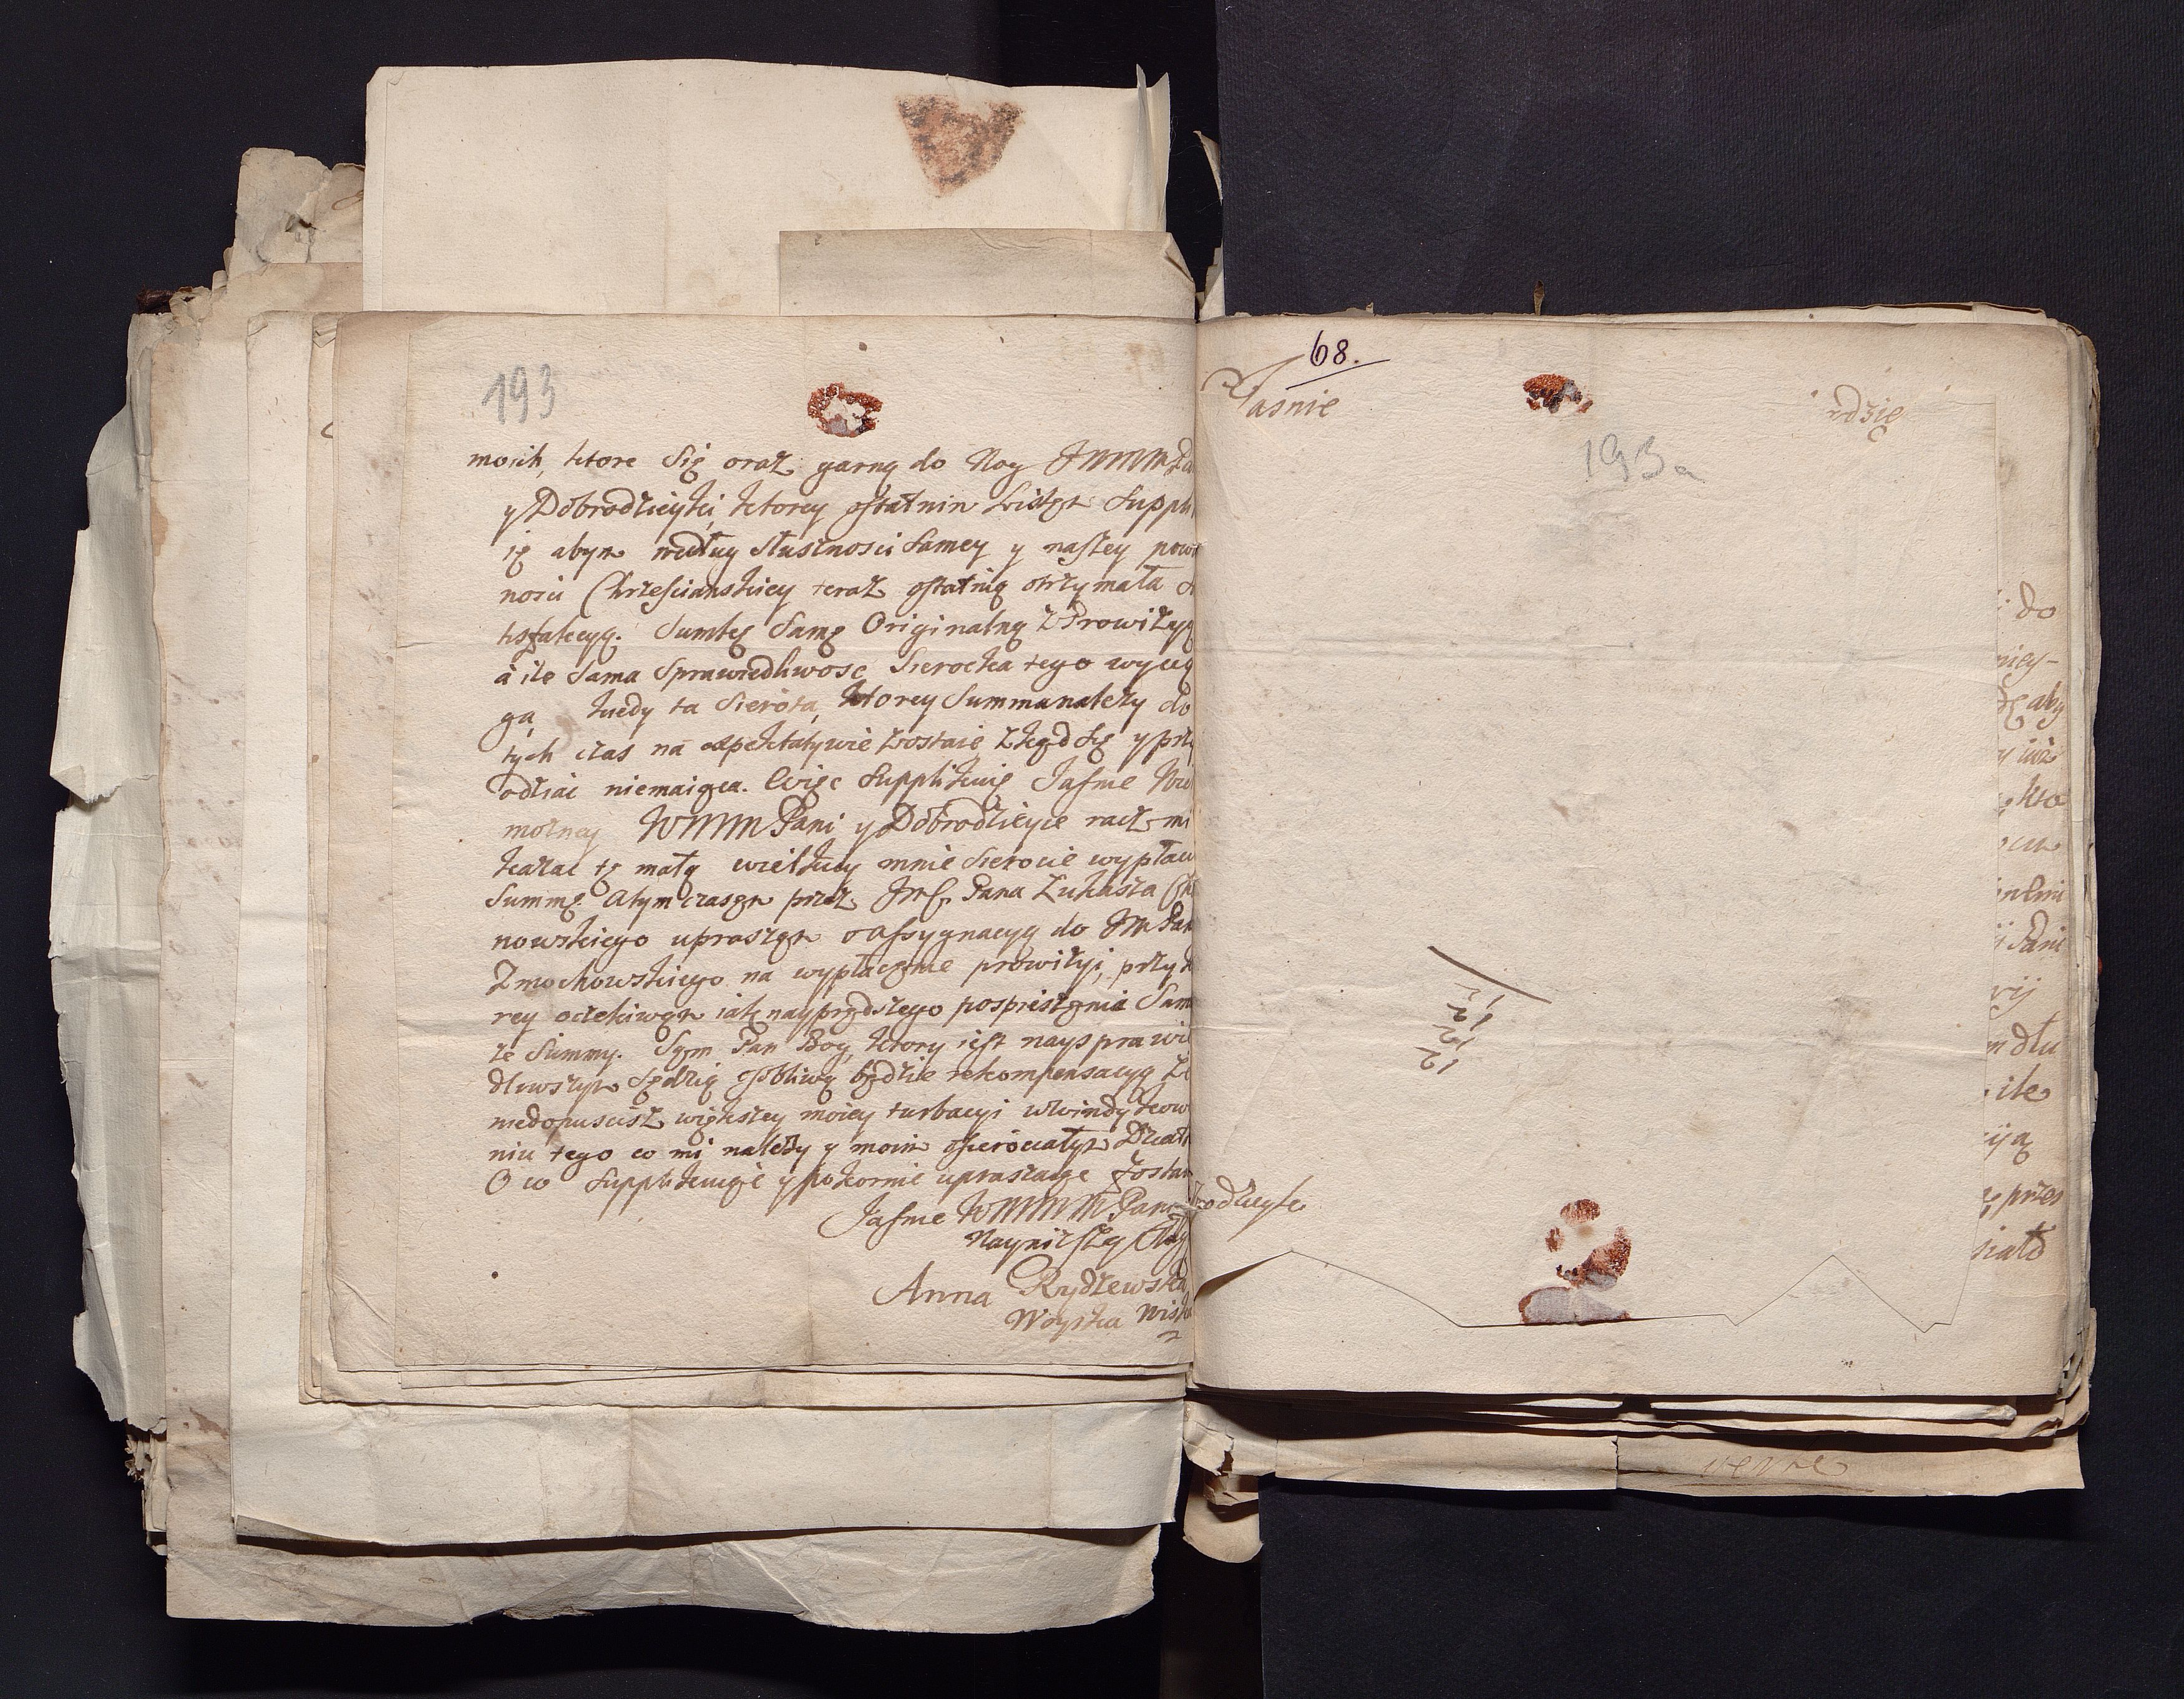 193
moich, ktore Się oraz garną do Nog JWWM Pa
y Dobrodzieyki, ktorey ostatnim Listem Suppli
ię abym według słusznosci Samey y naszey powi
nosci Chrzescianskiey teraz ostatnią otrzymała
Sumkę Samę Originalną z Prowizyą
à ile Sama Sprawiedliwosc Sierocka tego wycią
ga kiedy ta Sierota, ktorey Summa należy do
tych czas na expektatywie zostaie zkąd Się y przy
odziac niemaiąca. Więc Supplikuię Jasnie Wiel
możney WMM Pani y Dobrodzieyce racz mi
kazac tę małą wielkiey mnie Sierocie wypłac
Summę. Atym czasem przez Pana Łukasza
nowskiego upraszam o assygnacyą do JM Pan
Zmochowskiego na wypłacenie prowizyi, przy
rey oczekiwam iak nayprędszego pospieszenia Sam
ze Summy. Sam Pan Bog, ktory iest nayspra wie
dliwszym Sędzią osobliwą będzie rekompensacyą
niedopuscisz większey moiey turbacyi w windykow
niu tego co mi należy y moim osierociałym Dziat
O co Supplikuiąc y pokornie upraszaiąc Zostaie
Jasnie WMMM Pani
brodzieyki
Nayniższą Sług
Anna Rydzewska
Woyska Wisk
68.
Jasnie
dzie
193a
do
niey-
aby
y iuż
kto
Pani
dlu
ile
przez